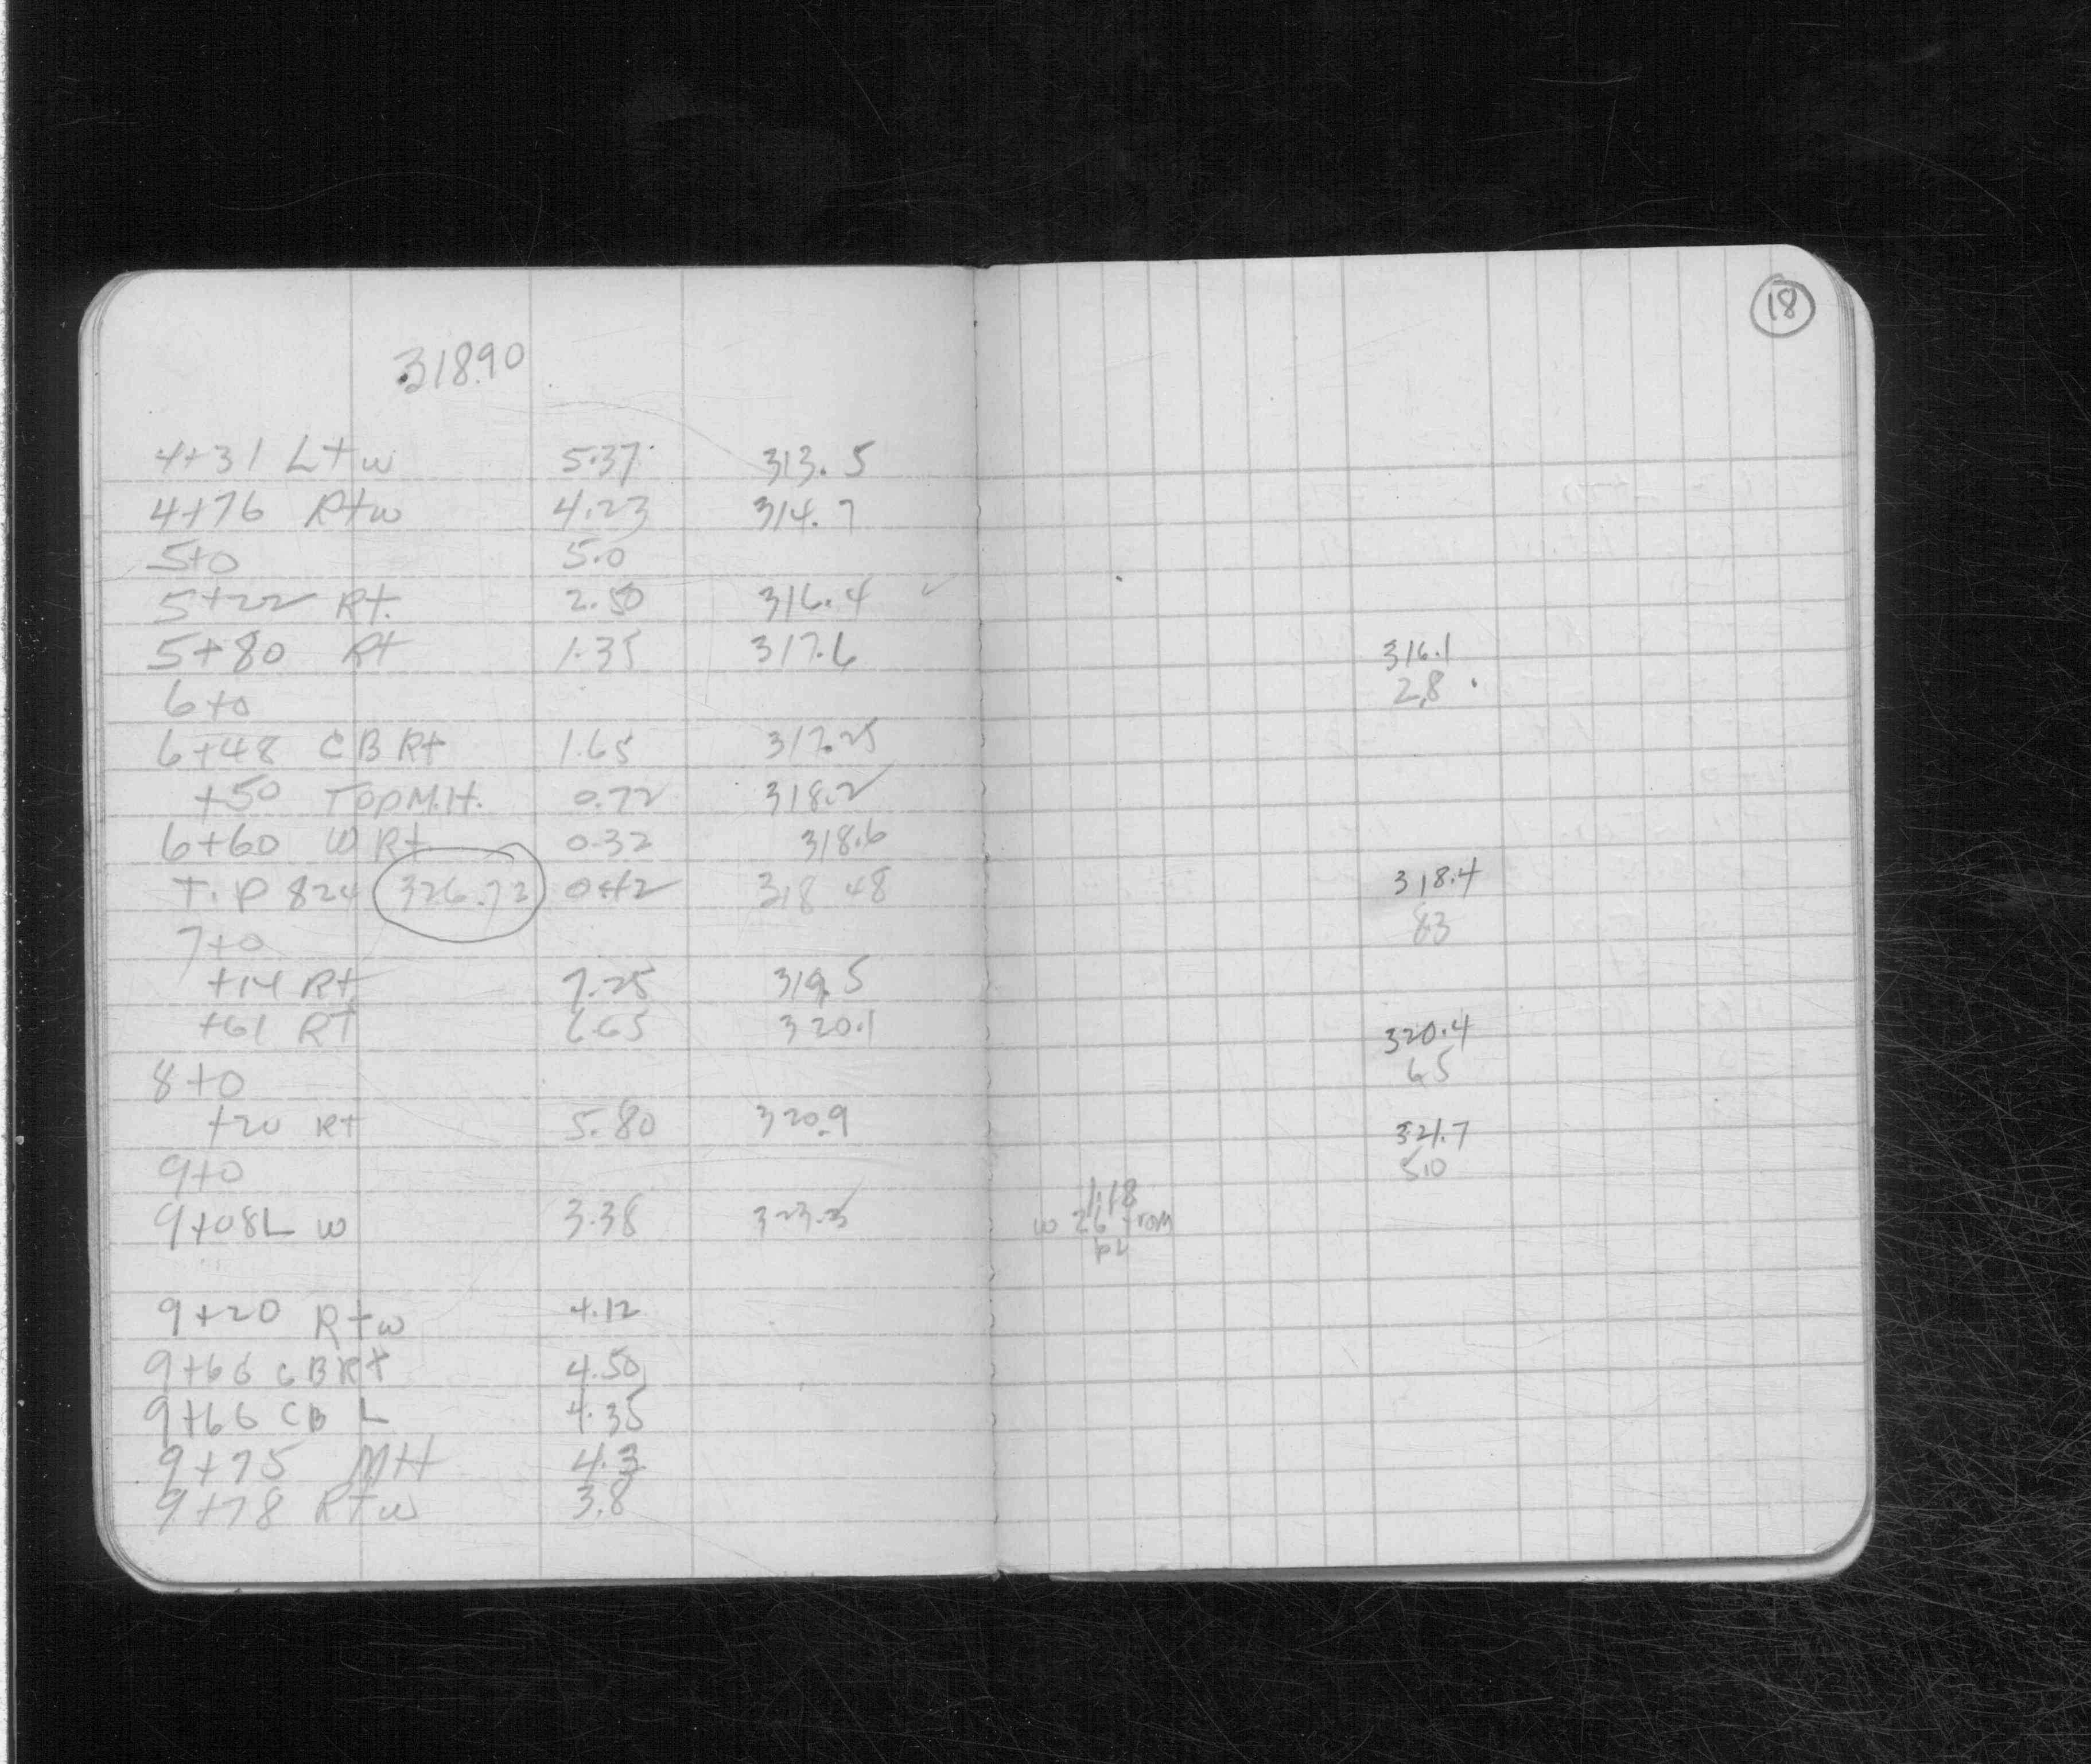 18
318.90
4+31 Lt w 5.37 313.5
4+76 Rt w 4.23 314.7
5+0 5.0
5+22 Rt. 2.50 316.4 ✓
5+80 Rt 1.35 317.6
316.1
2.8
6+0
6+48 CB Rt 1.65 317.25
+50 TOP M.H. 0.72 318.2
6+60 W Rt 0.32 318.6
T.P 824 326.72 0.42 318 48
318.4
83
7+0
+14 Rt 7.25 319.5
+61 RT 6.65 320.1
320.4
65
8+0
+20 Rt 5.80 320.9
321.7
5.0
9+0
9+08L w 3.38 323.3
1+18
w 26 from
PL
9+20 Rt w 4.12
9+66 CB Rt 4.50
9+66 CB L 4.35
9+75 MH 4.3
9+78 Rt w 3.8